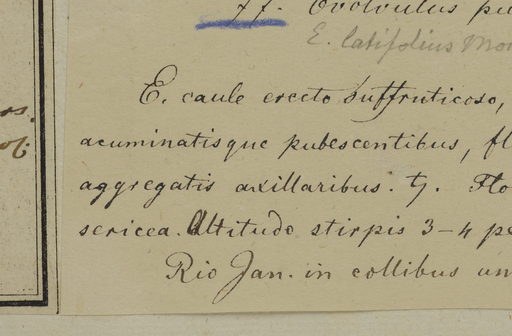 77. Evolvulus pu
E. latifolius Mor
E. caule erecto suffruticoso,
acuminatisque pubescentibus, fl
aggregatis axillaribus. ♄. Flo
sericea. Altitudo stirpis 3-4 pe
Rio Jan. in collibus um